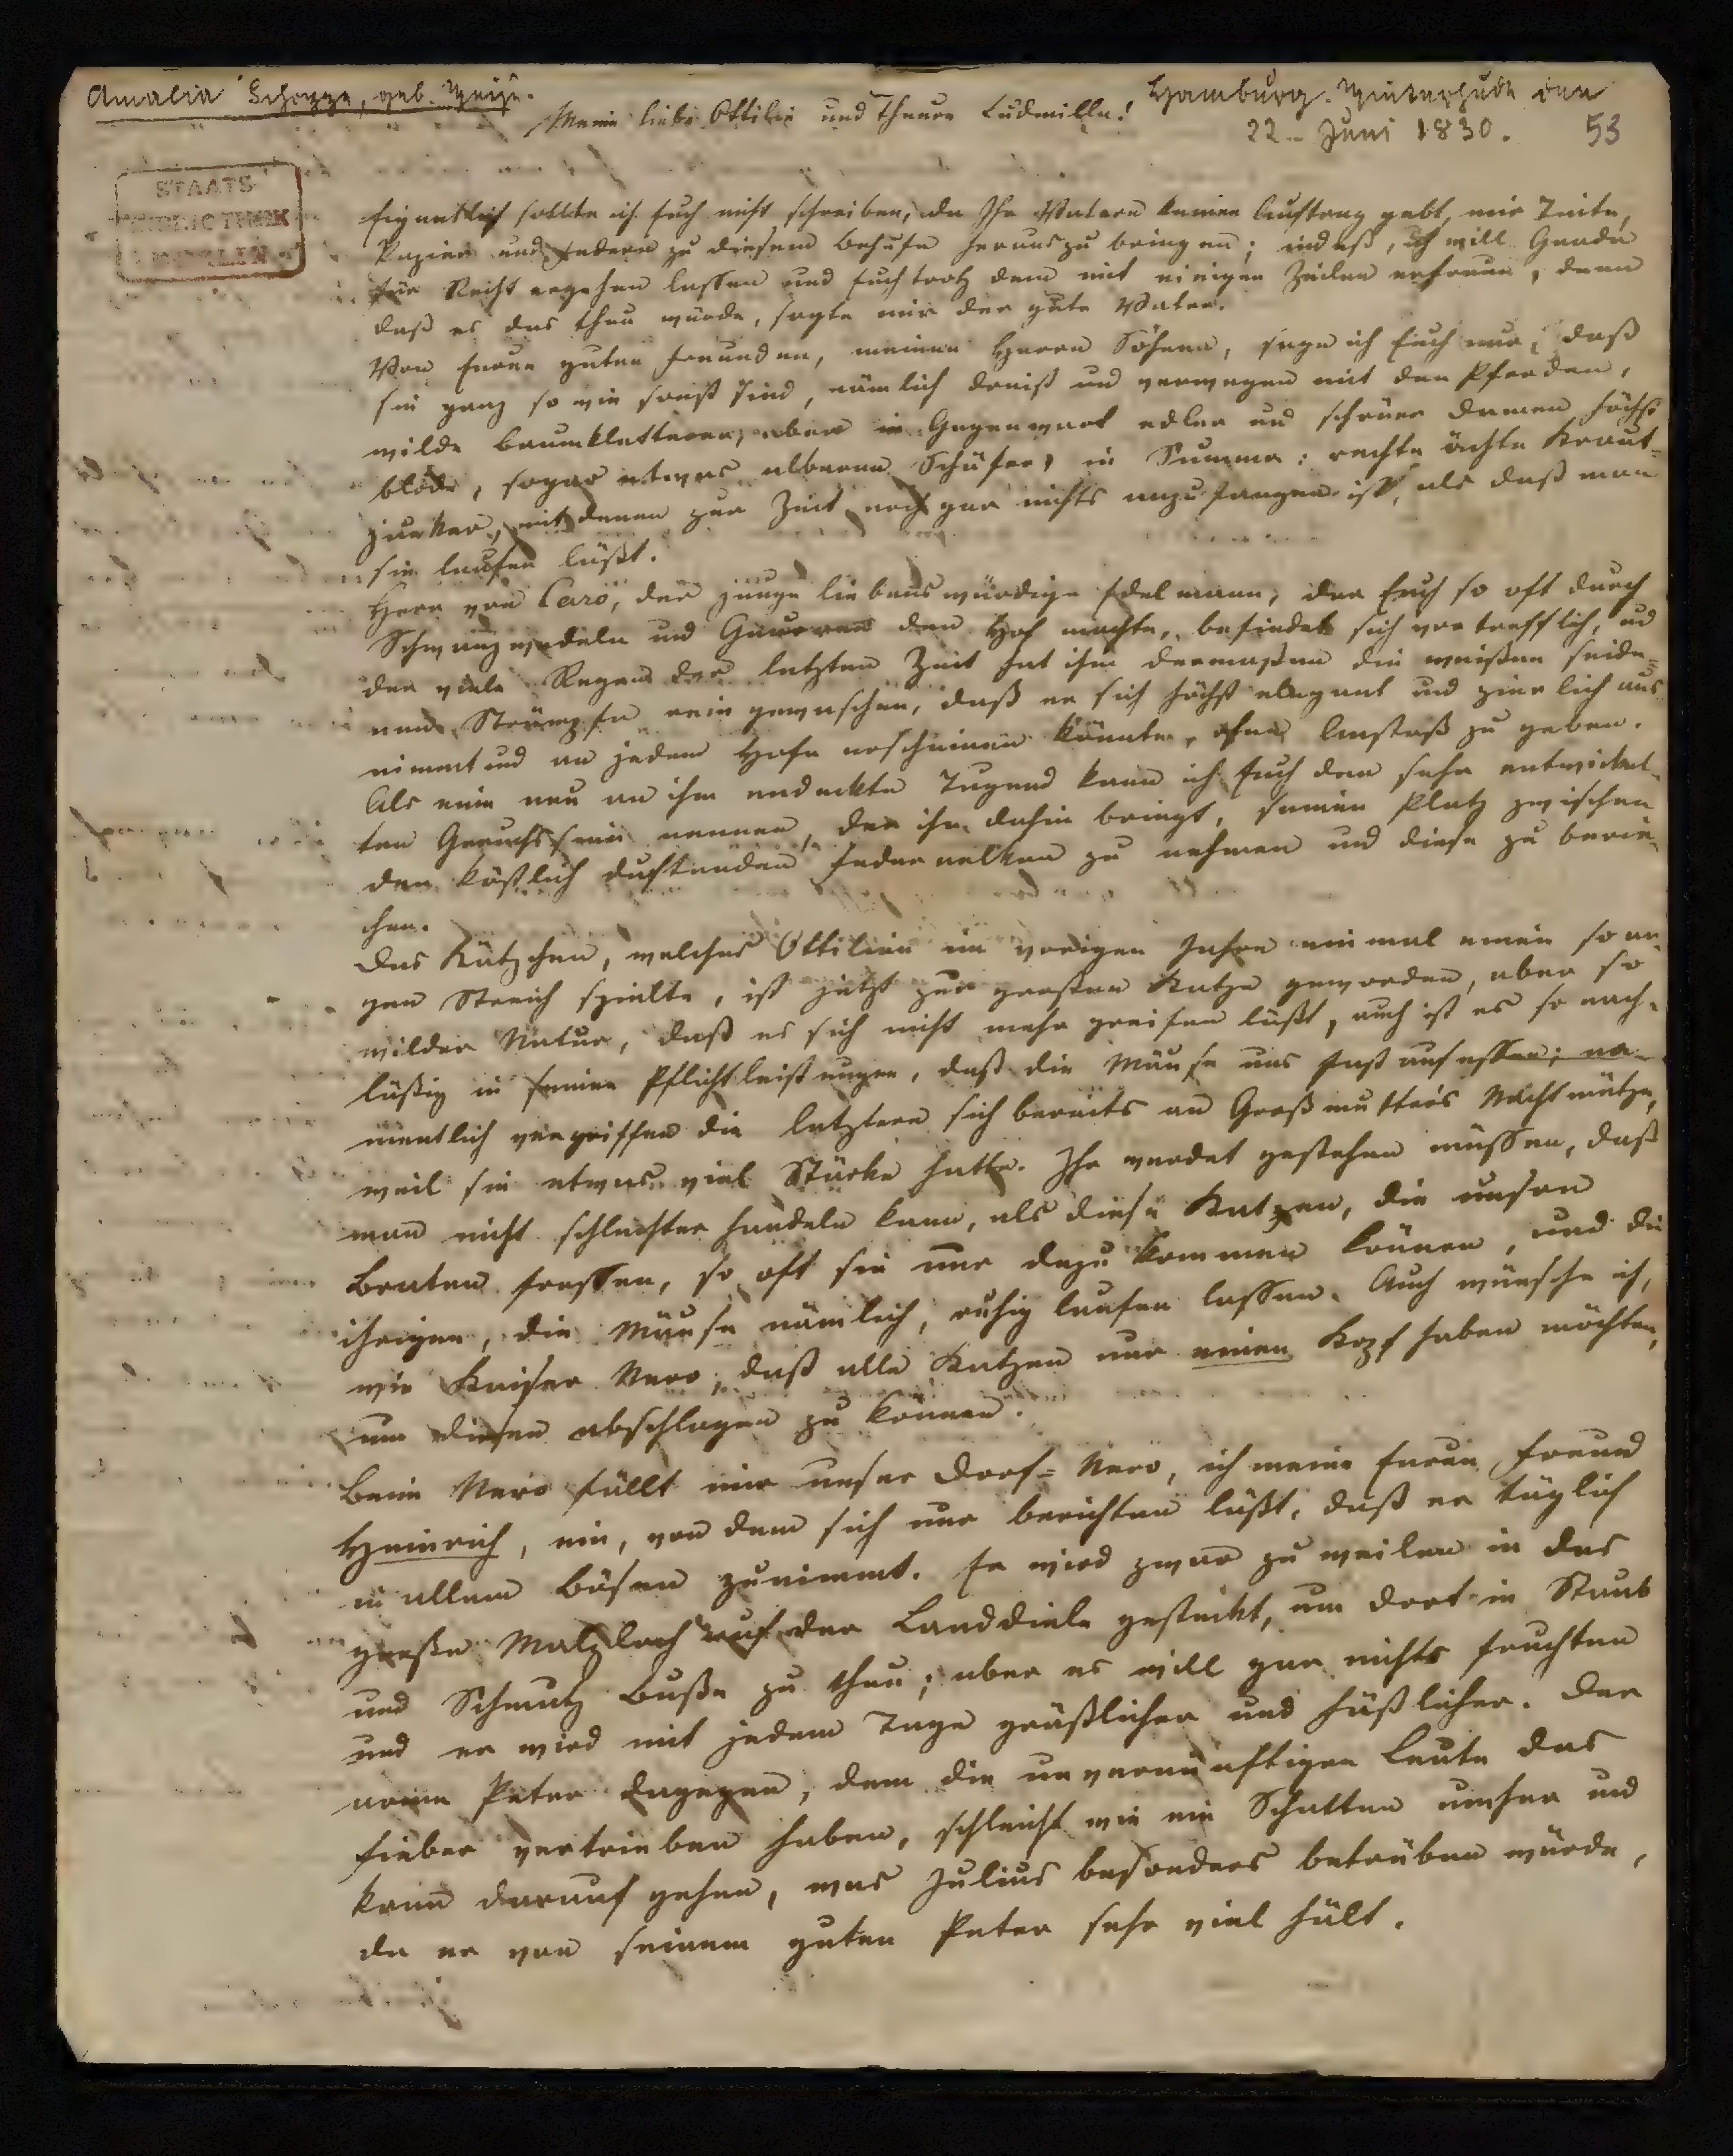 Amalia Schoppe, geb. Weise.
Hamburg. Winterhude den
Meine liebe Ottilie und theure Ludmilla!
22- Juni 1830. 53
STAATS
BIBLIOTHEK
BERLIN
Eigentlich sollte ich Euch nicht schreiben, da Ihr Vatern keinen Auftrag gebt, mir Tinte,
Papier und Federn zu diesem Behufe herauszubringen; indeß, ich will Gnade
für Recht ergehen lassen und Euch trotz dem mit einigen Zeilen erfreun, denn
daß es das thun würde, sagte mir der gute Vater.
Von Euren guten Freunden, meinen Herrn Söhnen, sage ich Euch nur, daß
sie ganz so wie sonst sind, nämlich dreist und verwegen mit den Pferden,
wilde Baumkletterer, aber in Gegenwart edler und schöner Damen höchst
blöde, sogar etwas alberne Schäfer, in Summa: rechte ächte Kraut-
junker, mit denen zur Zeit noch gar nichts anzufangen ist, als daß man
sie laufen läßt.
Herr von Caro, der junge liebenswürdige Edelmann, der Euch so oft durch
Schwanzwedeln und Gnurren den Hof machte, befindet sich vortrefflich, und
der viele Regen der letzten Zeit hat ihm dermaßen die weißen seide-
nen Strümpfe rein gewaschen, daß er sich höchst elegant und zierlich aus
nimmt und an jedem Hofe erscheinen könnte, ohne Anstoß zu geben.
Als eine neu an ihm endeckte Tugend kann ich Euch den sehr entwickel-
ten Geruchssinn nennen, der ihn dahin bringt, seinen Platz zwischen
den köstlich duftenden Federnelken zu nehmen und diese zu berie-
chen.
Das Kätzchen, welches Ottilien im vorigen Jahre einmal einen so ar-
gen Streich spielte, ist jetzt zur großen Katze geworden, aber so
wilder Natur, daß es sich nicht mehr greifen läßt, auch ist es so nach-
läßig in seinen Pflichtleistungen, daß die Mäuse uns fast aufessen; na-
mentlich vergriffen die letztern sich bereits an Großmutters Nachtmütze,
weil sie etwas viel Stärke hatte. Ihr werdet gestehen müssen, daß
man nicht schlechter handeln kann, als diese Katzen, die unsern
Braten fressen, so oft sie nur dazu kommen können, und die
ihrigen, die Mäuse nämlich, ruhig laufen lassen. Auch wünsche ich,
wie Kaiser Nero, daß alle Katzen nur einen Kopf haben möchten,
um diesen abschlagen zu können.
Beim Nero fällt mir unser Dorf-Nero, ich meine Euren Freund
Heinrich, ein, von dem sich nur berichten läßt, daß er täglich
in allem Bösen zunimmt. Er wird zwar zuweilen in das
große Malzloch auf der Landdiele gesteckt, um dort in Staub
und Schmutz Buße zu thun; aber es will gar nichts fruchten
und er wird mit jedem Tage gräßlicher und häßlicher. Der
arme Peter dagegen, dem die unvernünftigen Leute das
Fieber vertrieben haben, schleicht wie ein Schatten umher und
kann darauf gehen, was Julius besonders betrüben würde,
da er von seinem guten Peter sehr viel hält.